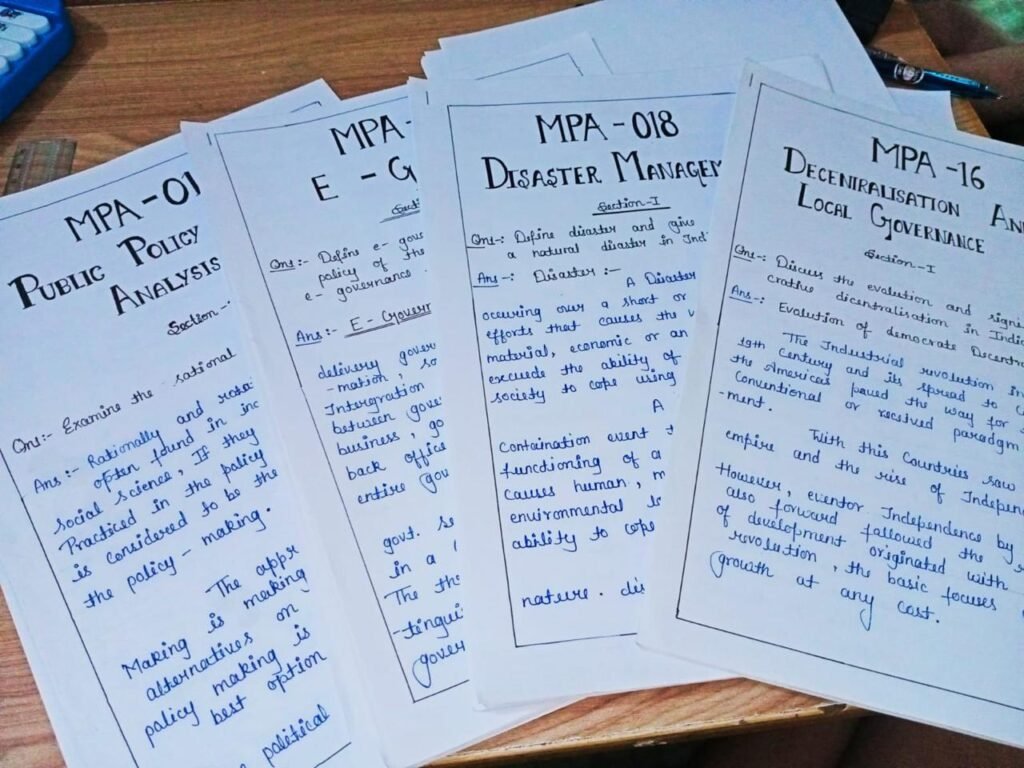 MPA-01
PUBLIC POLICY
ANALYSIS
Section-
Qn1:- Examine the rational
Ans:- Rationally and
often found in
social science, If they
Practiced in the policy
is considered to be the
the policy - making.
The appr
Making is making
alternatives on
policy making is
best option
political
MPA-
E - G
Secti
Qn1:- Define e- gov
policy of the
e- governance.
Ans:- E - Govern
delivery gover
-mation, so
Intergration
between gove
business, go
back offic
entire gov
govt. se
in a
The th
-tingui
gover
MPA - 018
DISASTER MANAGEM
Section-I
Qn1:- Define disaster and give
a natural disaster in Ind
Ans-: Disaster :-
A Disaster
occuring over a short or
efforts that causes the
material, economic or an
exceeds the ability of
society to cope using
A
Containation event
functioning of a
causes human, m
environmental lo
ability to cope
nature. dis
MPA - 16
DECENTRALISATION AN
LOCAL GOVERNANCE
Section-I
Qn1-: Discuss the evalution and signi
crative dicentralisation in Indi
Ans-: Evolution of democrate Decentra
The Industrial revolution in
19th Century and its spread to
the Americas paved the way for
Conventional or received paradigm
-ment.
With this Countries saw
empire and the rise of Indepen
However, eventor Independence by
also forward followed the
of development originated with
revolution, the basic focuses
growth at any cost.